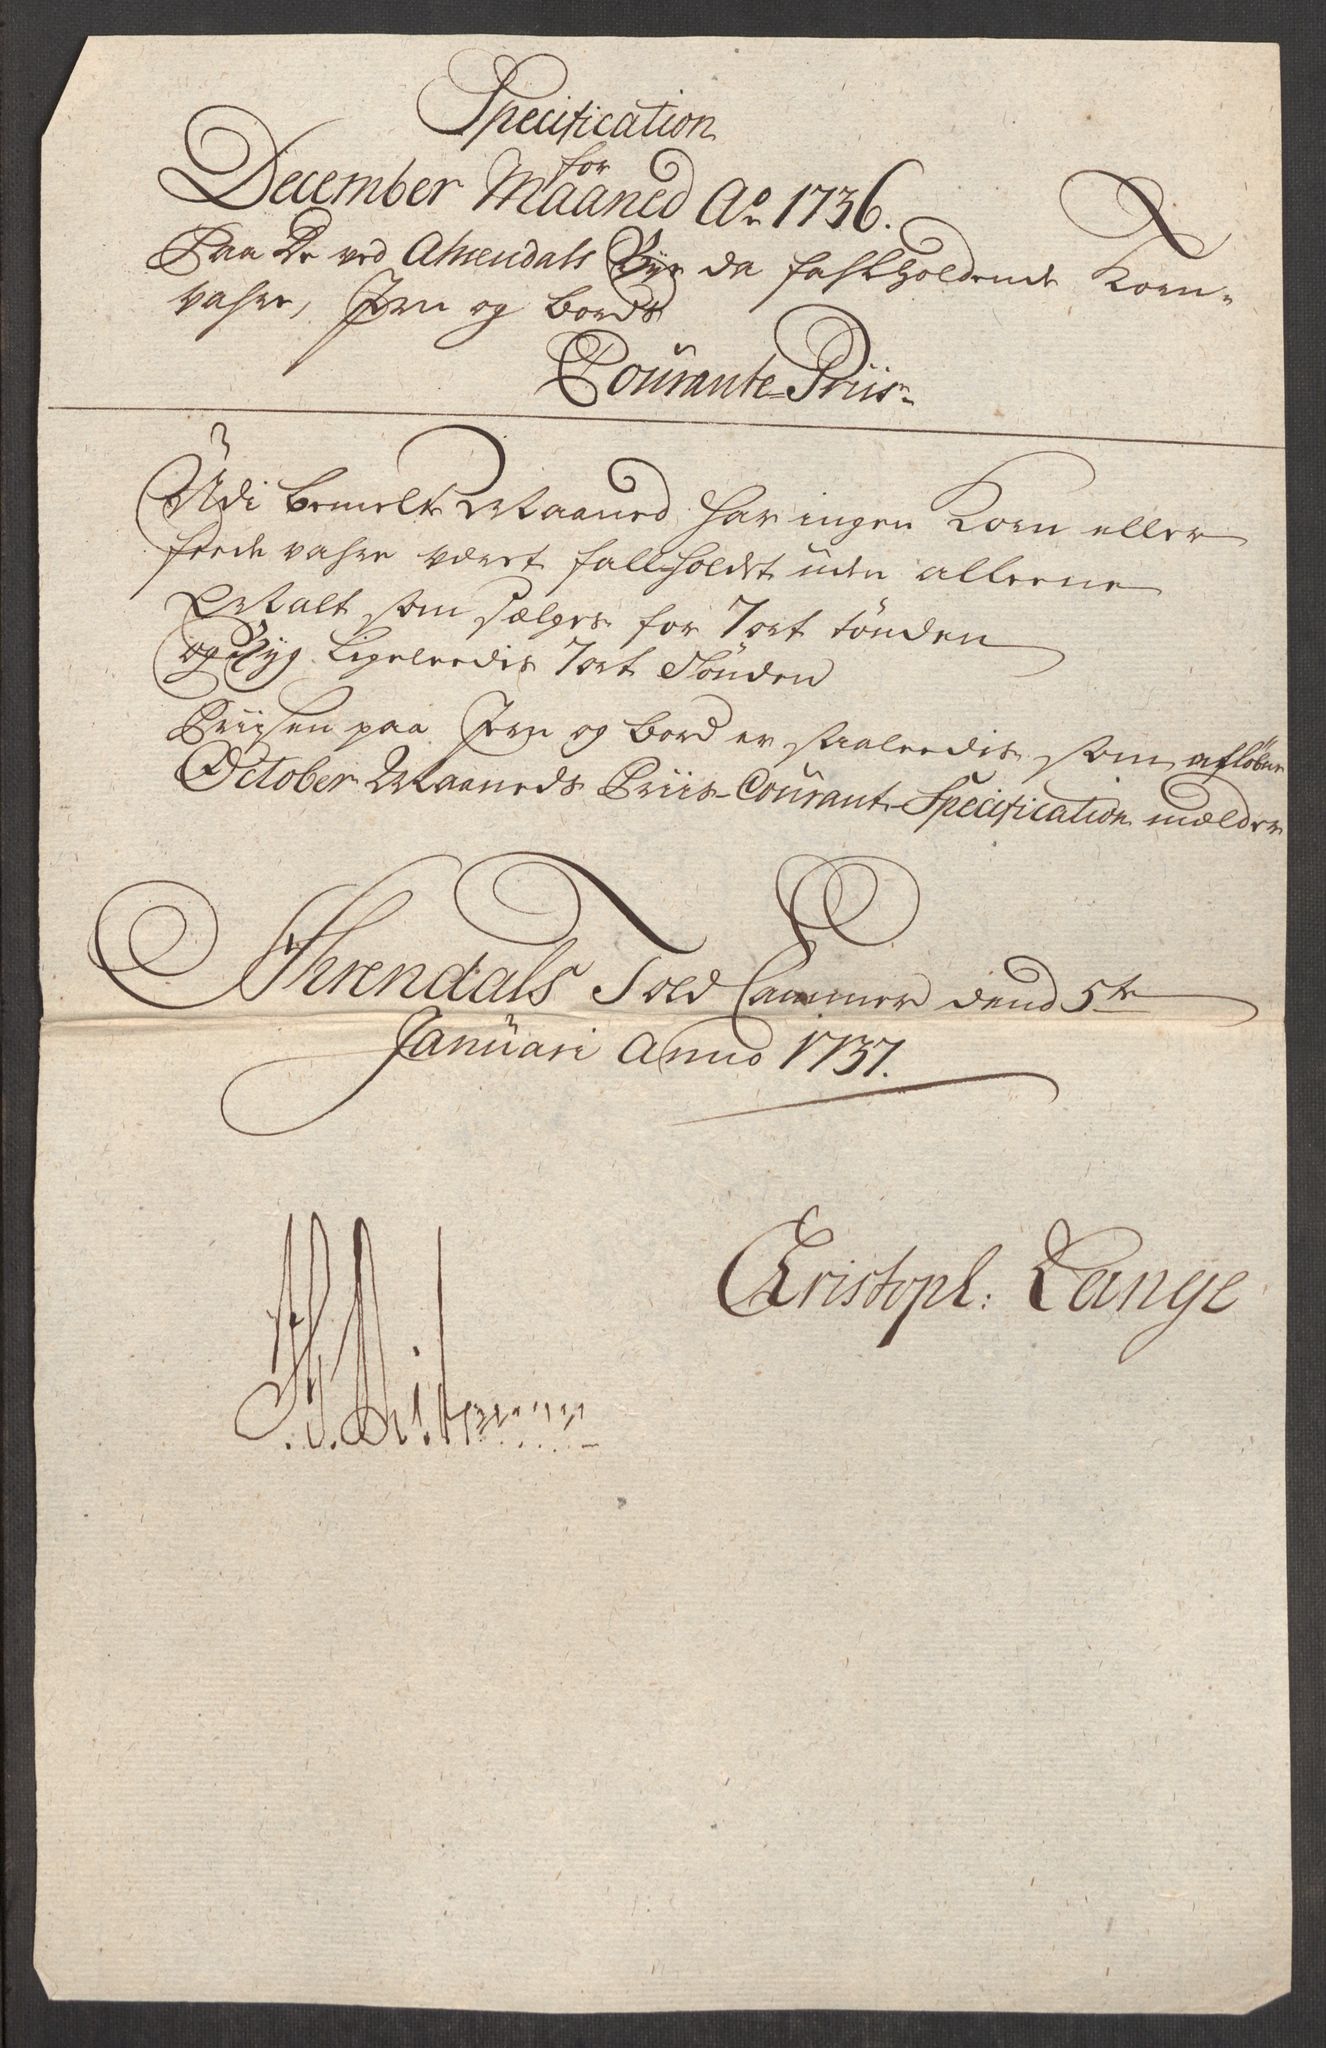 Specification
for
December Maaned Ao 1736.
Paa De ved Ahrendals Bye da fahlholdende Korn-
vahre, Jern og bords
Courante-Priis-
Udi bemelte Maaned har ingen Korn eller
feede vahre været fallholdet uden alleene
Malt som sælges for 7 ort tønden
og Byg Ligeleedis 7 ort Tønden
Priisen paa Jern og bord er saaleedis som afløbne
October Maaneds Priis-Courant-Specification melder
Ahrendals Told Cammer dend 5te
Januari Anno 1737.
Christoph: Lange